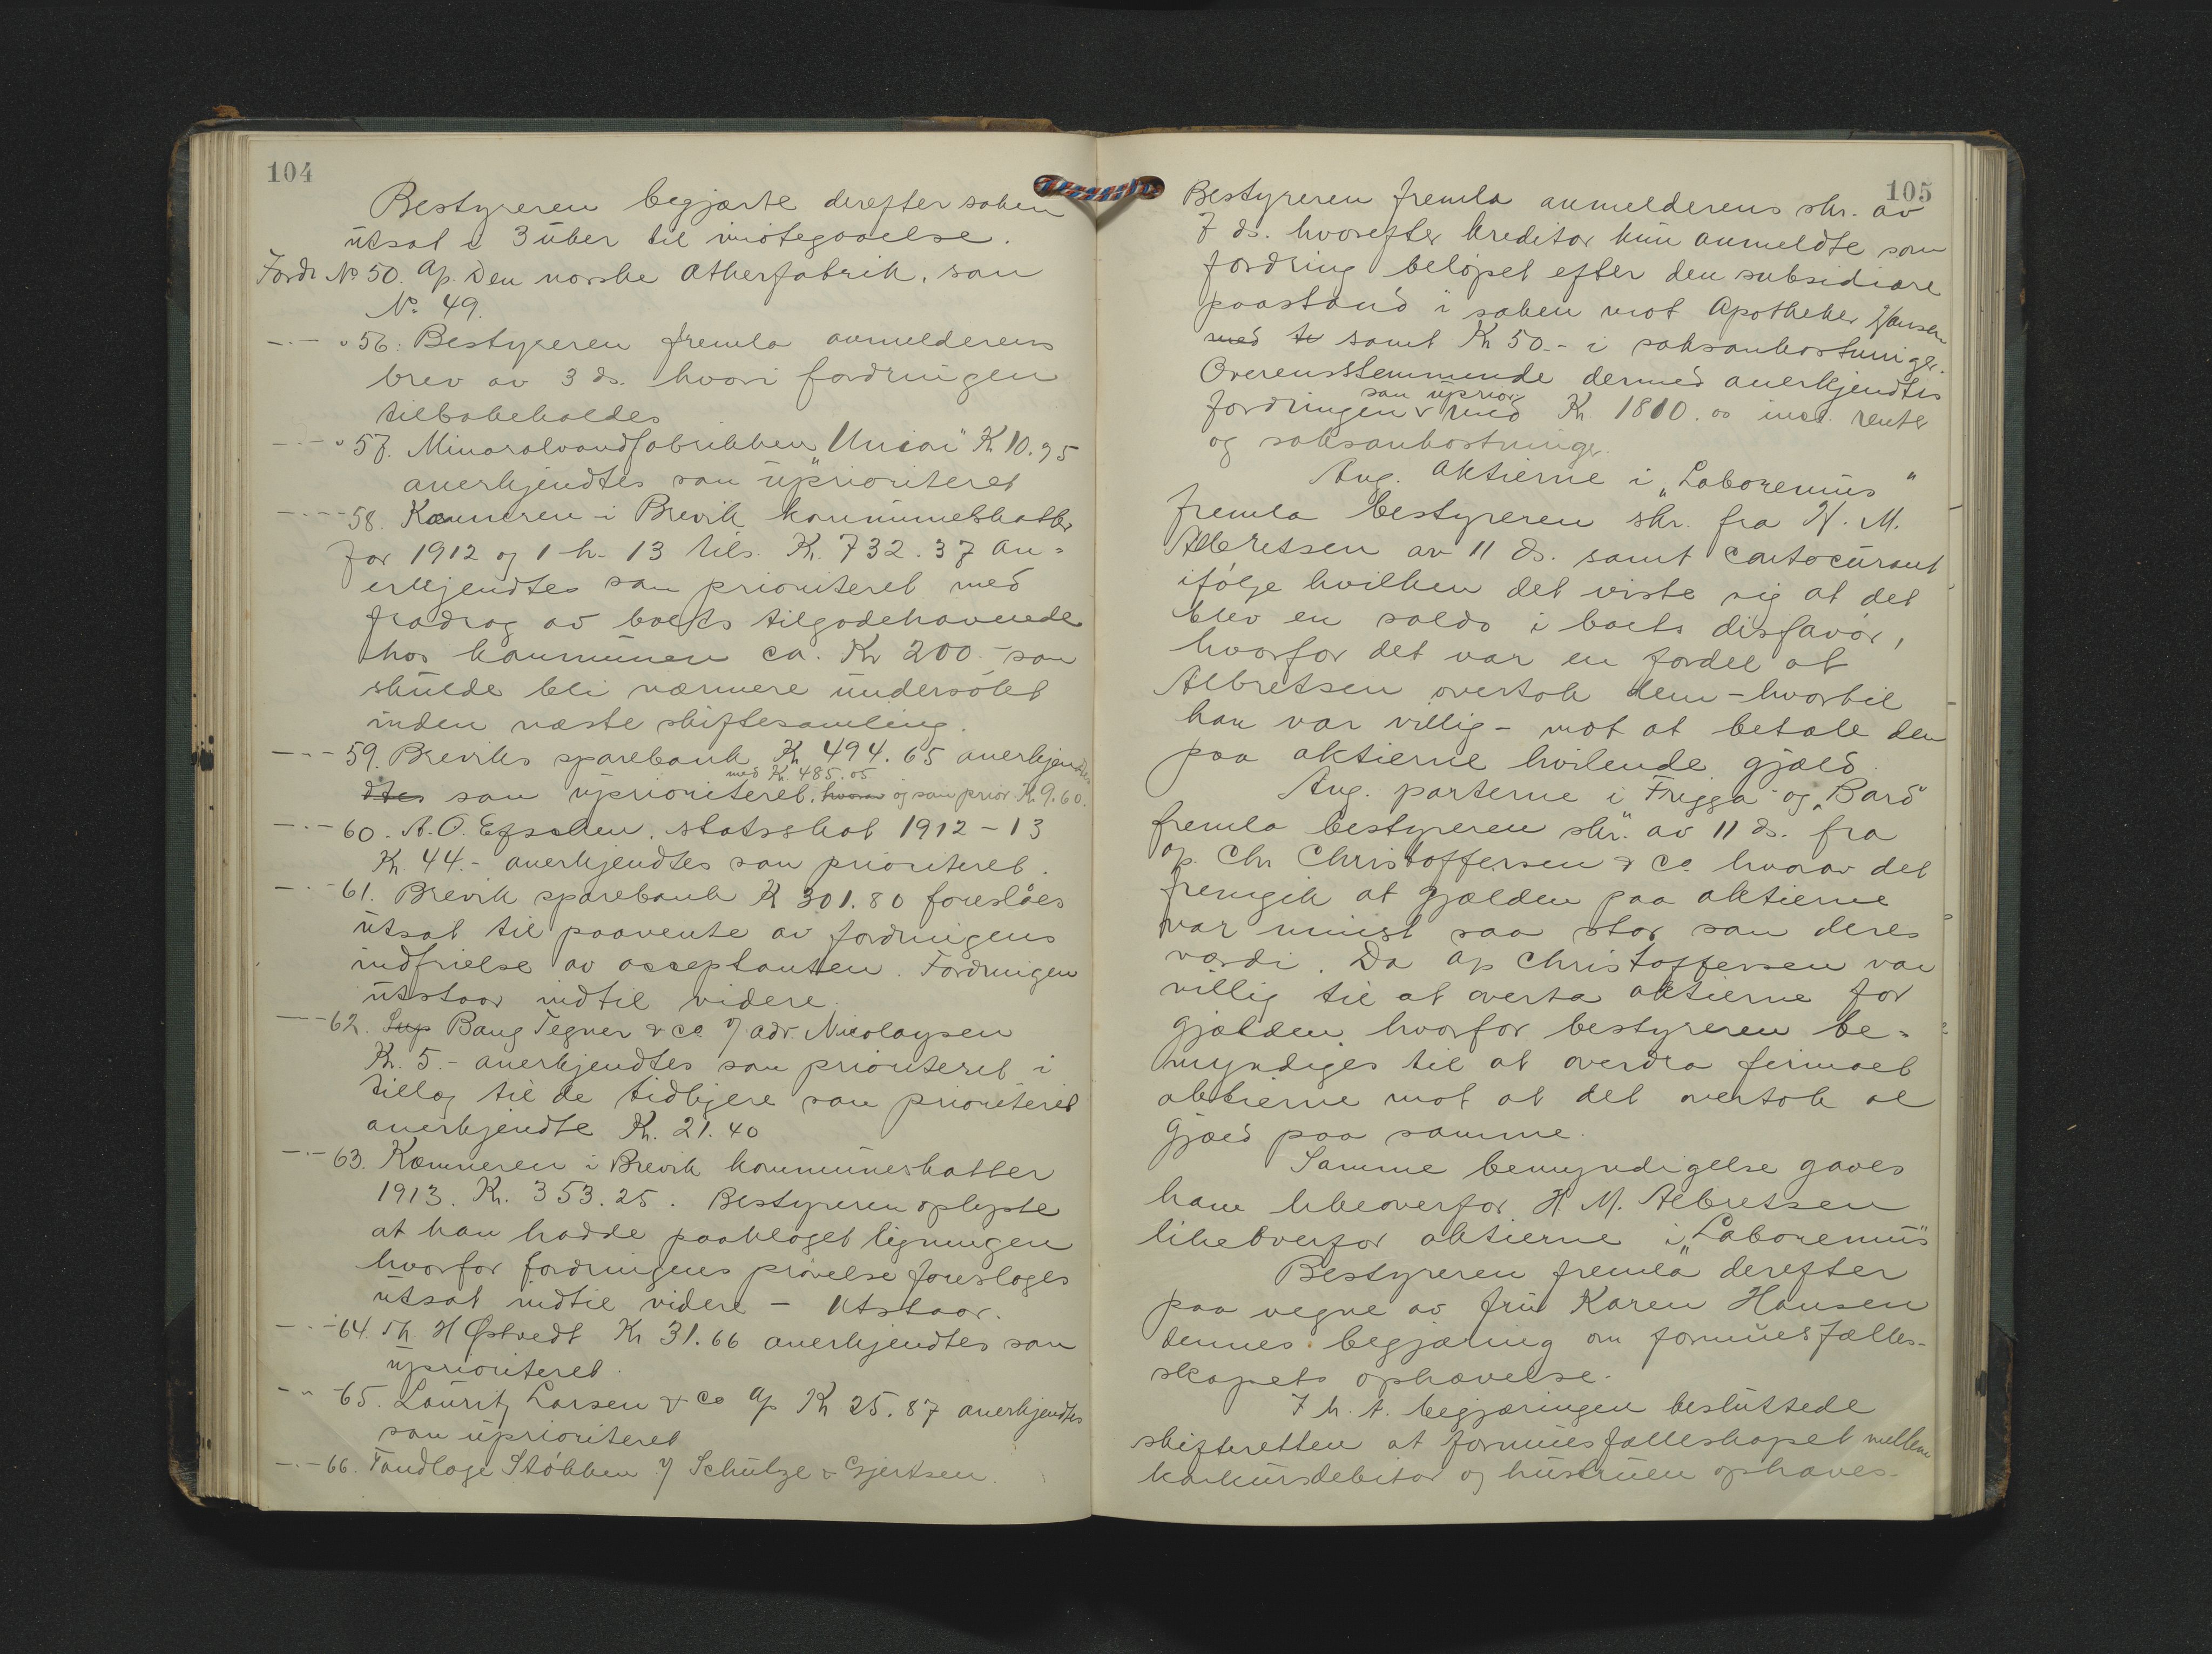 104
Bestyreren begjærte derefter saken
utsat i 3 uker til imøtegaaelse.
Fordr No 50. A/s Den norske Ætherfabrik, som
No 49.
— " — " 56. Bestyreren fremla anmelderens
brev av 3 ds. hvori fordringen
tilbakeholdes
— " — " 57. Mineralvandfabrikken "Union" Kr 10.95
anerkjendtes som uprioritert
— " — 58. Kæmneren i Brevik kommuneskatter
for 1912 og 1 h. 13 tils. Kr. 732.37 an=
erkjendtes som prioriteret med
fradrag av boets tilgodehavende
hos kommunen ca. Kr 200.- som
skulde bli nærmere undersøkt
inden næste skiftesamling.
— " — 59. Breviks sparebank Kr 494.65 anerkjendtes
med Kr. 485.05
dtes som uprioriteret, hvorav og som prior. Kr. 9.60.
— " — 60. A. O. statsskat 1912-13
Kr. 44.- anerkjendtes som prioriteret.
— " — 61. Brevik sparebank Kr 301.80 foreslaaes
utsat til paavente av fordringens
indfrielse av acceptanten. Fordringen
utstaar indtil videre.
— " — 62. Sup Bang Tegner & Co. v/ adv. Nicolaysen
Kr. 5.- anerkjendtes som prioriteret i
tillæg til de tidligere som prioriteret
anerkjendte Kr. 21.40
— " — 63. Kæmneren i Brevik kommuneskatter
1913. Kr. 353.25. Bestyreren oplyste
at han hadde paaklaget ligningen
hvorfor fordringens prøvelse foresloges
utsat indtil videre — Utstaar.
— " — 64. Th. H Østvedt Kr 31.66 anerkjendtes som
uprioriteret.
— " — 65. Lauritz Larsen & Co A/s Kr 25.87 anerkjendtes
som uprioriteret
— " — 66. Tandlæge Støkken v/ Schulze & Gjertsen.
105
Bestyreren fremla anmelderens skr. av
7 ds. hvorefter kreditor kun anmeldte som
fordring beløpet efter den subsidiære
paastand i saken mot Apotheker Hansen
med te samt Kr 50.- i saksomkostninger.
Overensstemmende dermed anerkjendtes
som uprior
fordringen v med Kr. 1810.00 incl. renter
og saksomkostninger.
Ang. aktierne i "Laboremus"
fremla bestyreren skr. fra H. M.
Albretsen av 11 ds. samt contocurant
ifølge hvilken det viste sig at det
blev en saldo i boets disfavør,
hvorfor det var en fordel at
Albretsen overtok dem - hvortil
han var villig - mot at betale den
paa aktierne hvilende gjæld.
Ang. parterne i "Frigga" og "Bard"
fremla bestyreren skr. av 11 ds. fra
A/s Chr Christoffersen & Co. hvorav det
fremgik at gjælden paa aktierne
var minst saa stor som deres
værdi. Da A/s Christoffersen var
villig til at overta aktierne for
gjælden, hvorfor bestyreren be=
myndiges til at overdra firmaet
aktierne mot at det overtok al
gjæld paa samme.
Samme bemyndigelse gaves
ham likeoverfor H. M. Albretsen
likeoverfor aktierne i "Laboremus"
Bestyreren fremla derefter
paa vegne av fru Karen Hansen
dennes begjæring om formuesfælles-
skapets ophævelse.
I h. t. begjæringen besluttede
skifteretten at formuesfælleskapet mellem
konkursdebitor og hustruen ophæves.